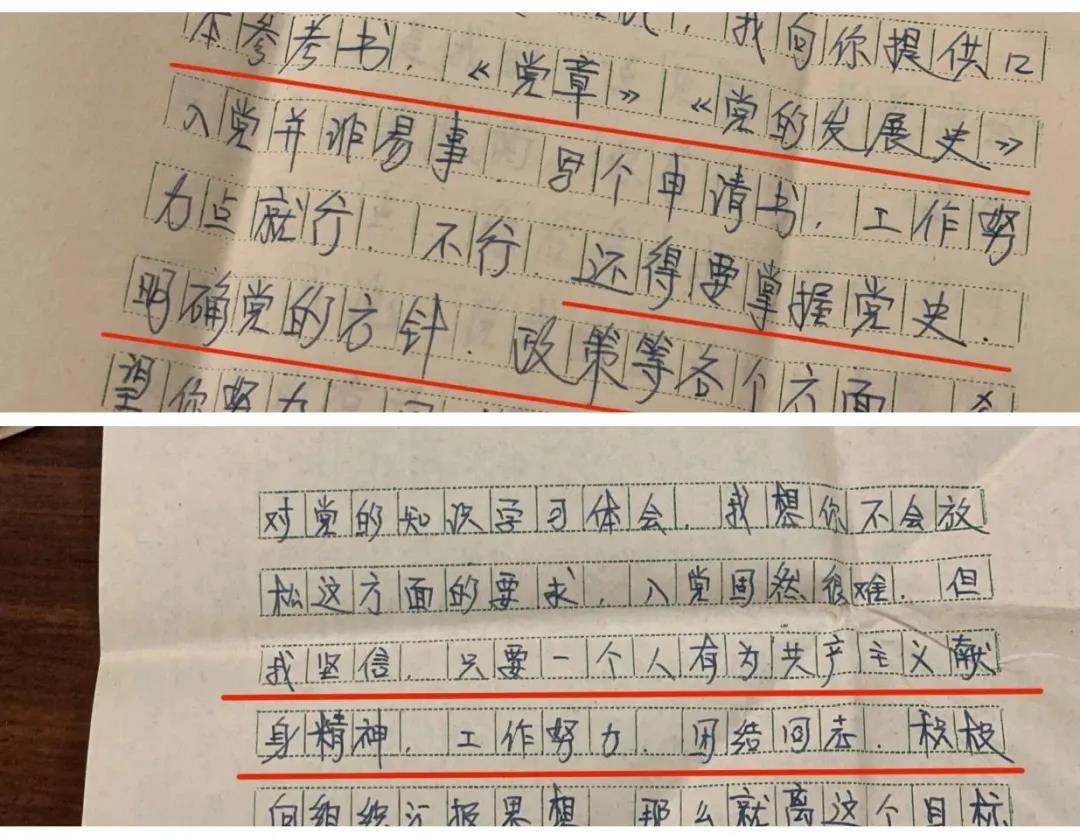 我向你提供几
本参考书,《党章》《党的发展史》
入党并非易事.写个申请书,工作努
力点就行.不行.还得要掌握党史.
明确党的方针.政策等各个方面
望你努力
对党的知识学习体会.我想你不会放
松这方面的要求,入党固然很难.但
我坚信.只要一个人有为共产主义献
身精神,工作努力.团结同志.积极
向组织汇报思想 那么就离这个目标